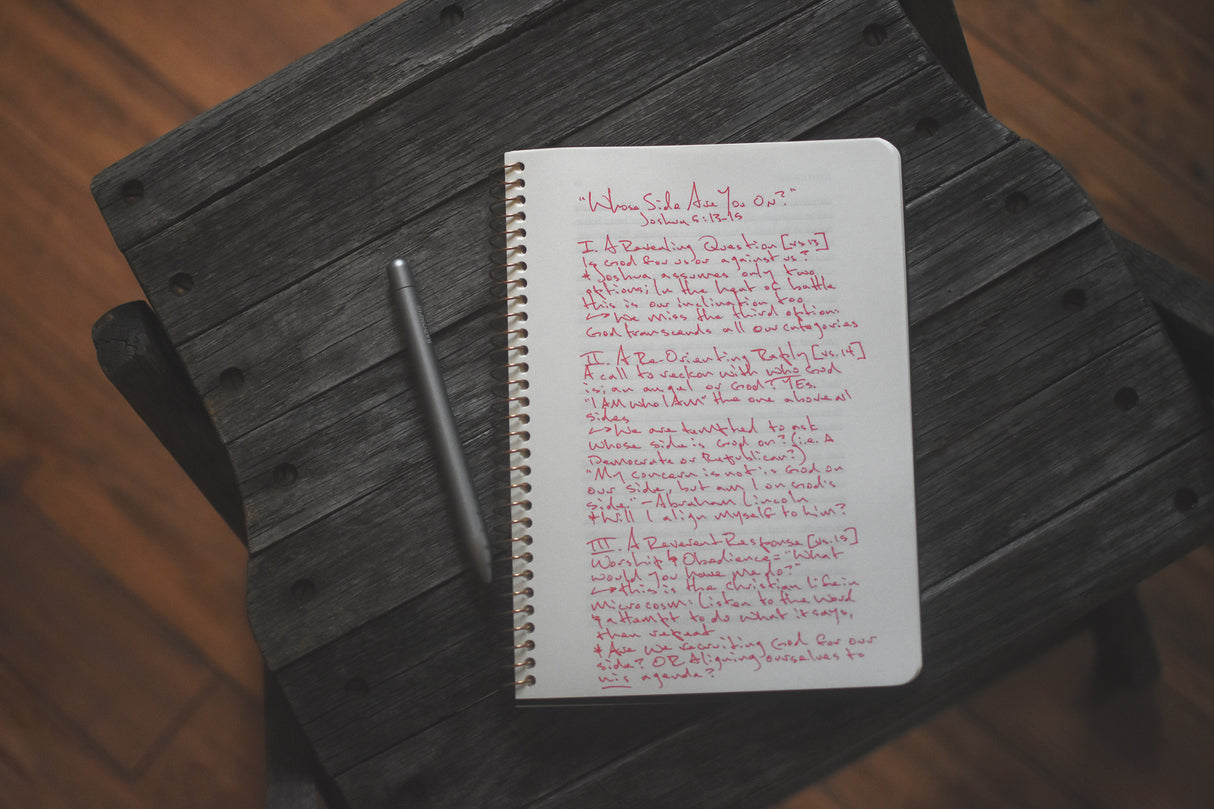 "Whose Side Are You On?"
Joshua 5:13-15
I. A Revealing Question [vs.13]
Is God for us or against us?
* Joshua assumes only two
options; In the heat of battle
this is our inclination too
↳ We miss the third option:
God transcends all our categories
II. A Re-Orienting Reply [vs.14]
A call to reckon with who God
is; an angel or God? YES.
"I AM WHO I AM" the one above all
sides
↳ We are tempted to ask
whose side is God on? (i.e. A
Democrate or Republican?)
"My concern is not is God on
our side, but am I on God's
side." - Abraham Lincoln
* Will I align myself to him?
III. A Reverent Response [vs.15]
Worship & Obedience = "What
would you have me do?"
↳ this is the christian life in
microcosm: Listen to the Word
& attempt to do what it says,
then repeat
* Are we recruiting God for our
side? OR Aligning ourselves to
his agenda?